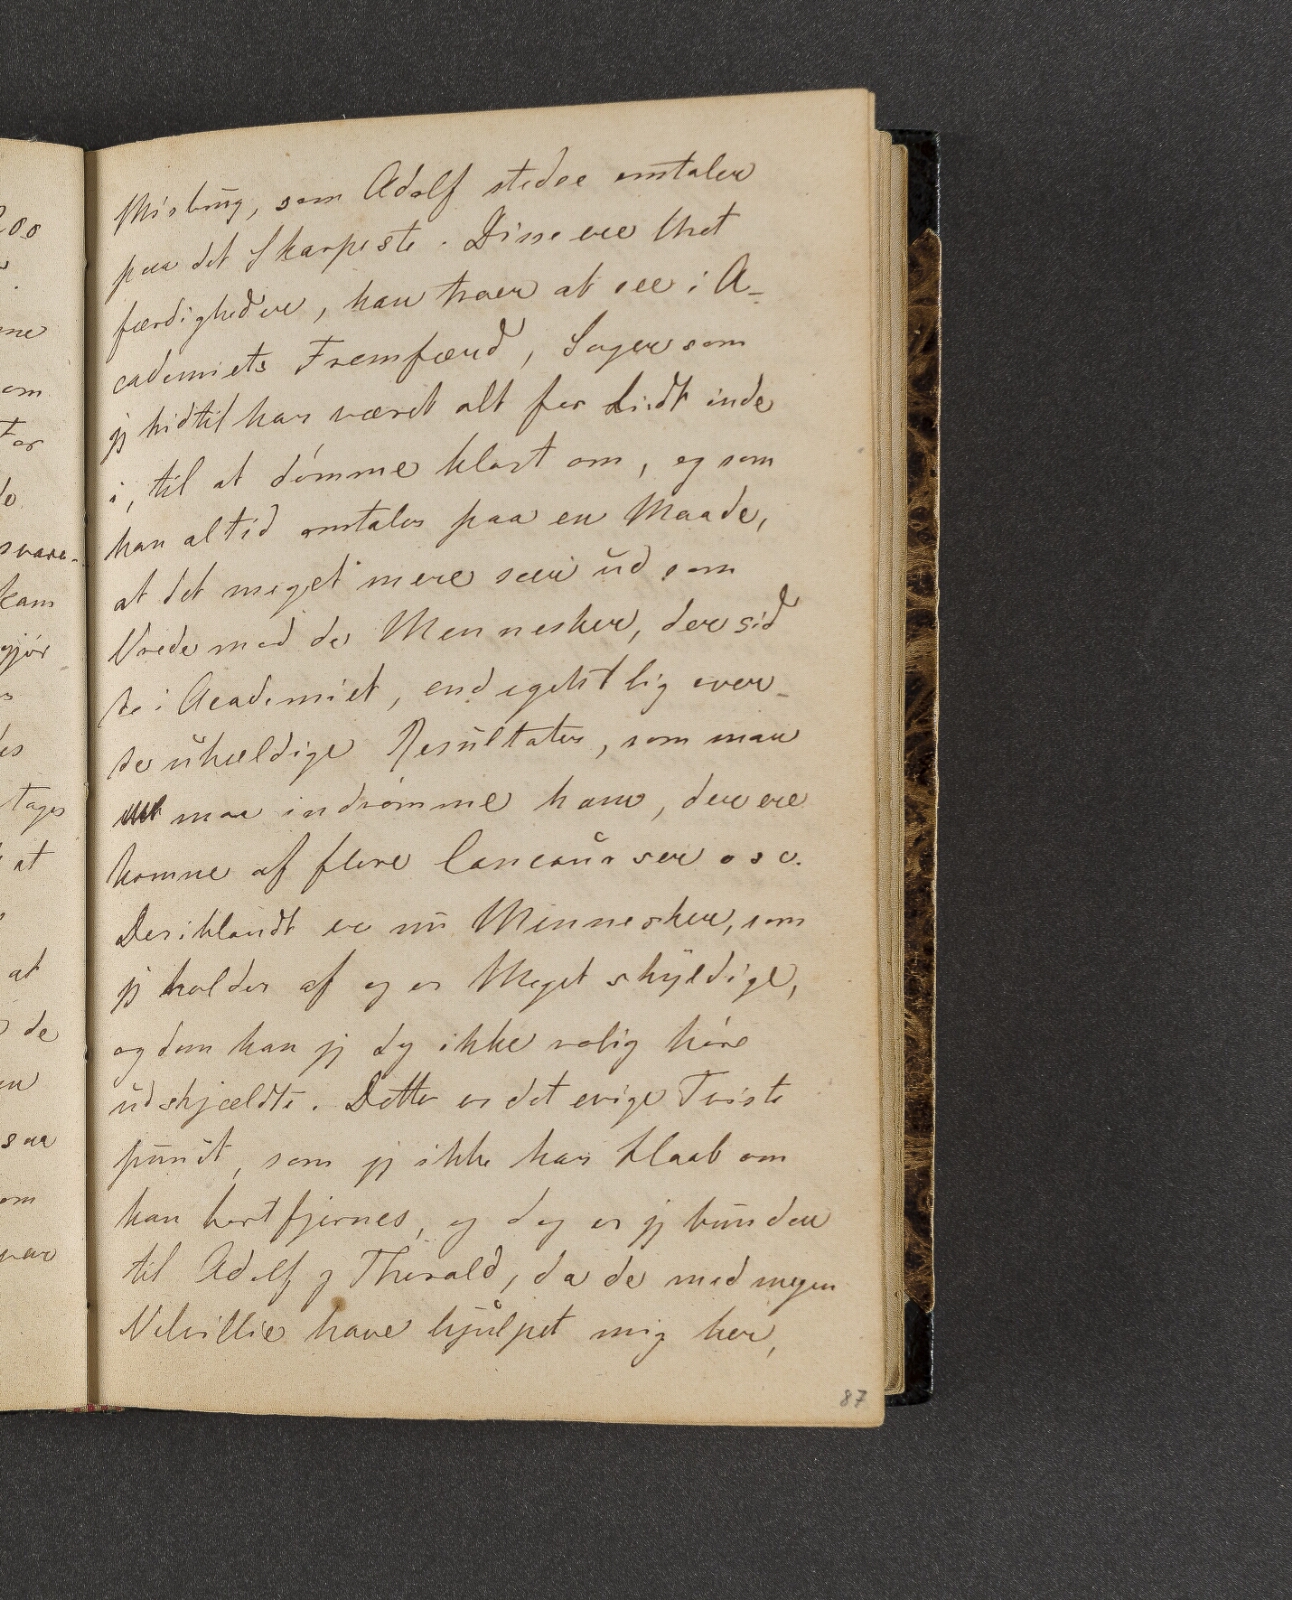 Misbrug, som Adolf stedse omtaler
paa det Skarpeste. Disse ere Uret
færdigheder, han troer at see i A-
cademiets Fremfærd, Sager som
jeg hidtil har været alt for Lidt inde
i, til at dømme klart om, og som
han altid omtaler paa en Maade,
at det meget mere seer ud som
Vrede mod de Mennesker, der sid
de i Academiet, end egentlig over
de uheldige Resultater, som man
maa indrømme ham, der ere
komne af flere Concourser osv.
Deriblandt er nu Mennesker, som
jeg holder af og er Meget skyldige,
og dem kan jeg dog ikke rolig høre
udskjældte. Dette er det evige Tviste
punct, som jeg ikke har Haab om
kan bortfjernes, og dog er jeg bunden
til Adolf og Thorald, da de med megen
Velvillie have hjulpet mig her,
87
200
me
om
For
de
svare-
kan
gjør
des
tages
at
at
de
en
saa
om
var